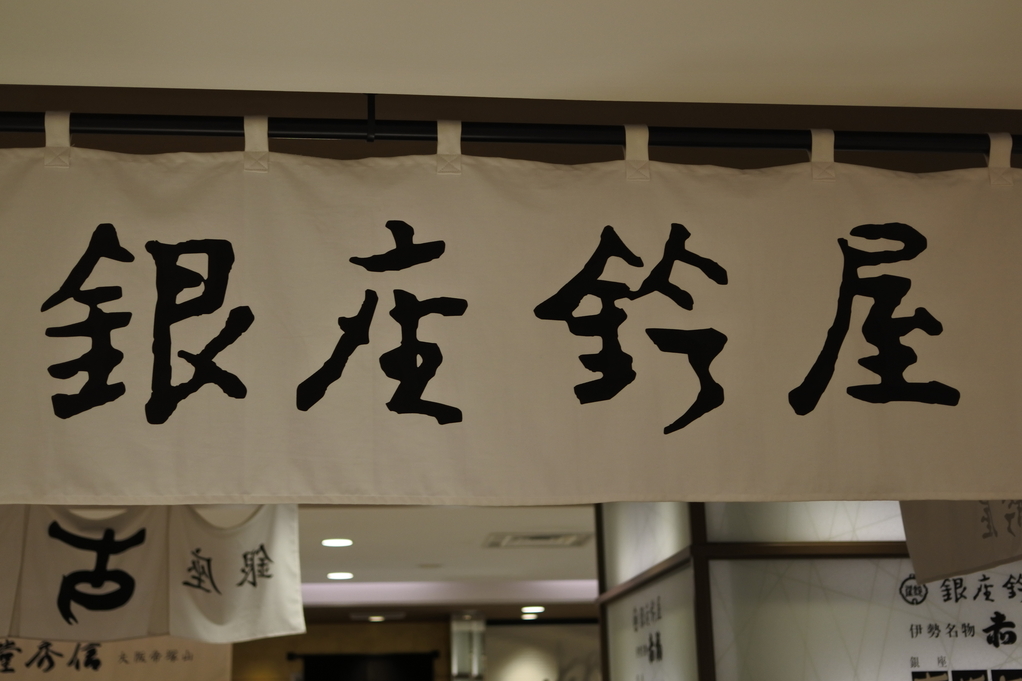 銀座鈴屋
銀座
大阪帝塚山
銀座鈴
伊勢名物
赤
銀座